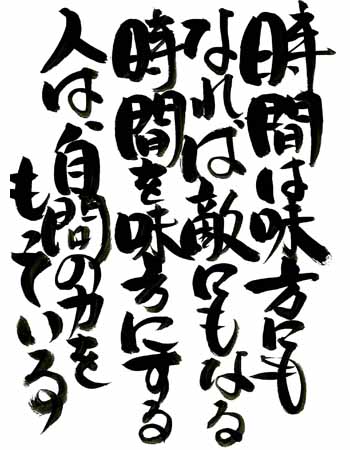 時間は味方にも
なれば敵にもなる
時間を味方にする
人は、自問の力を
もっている